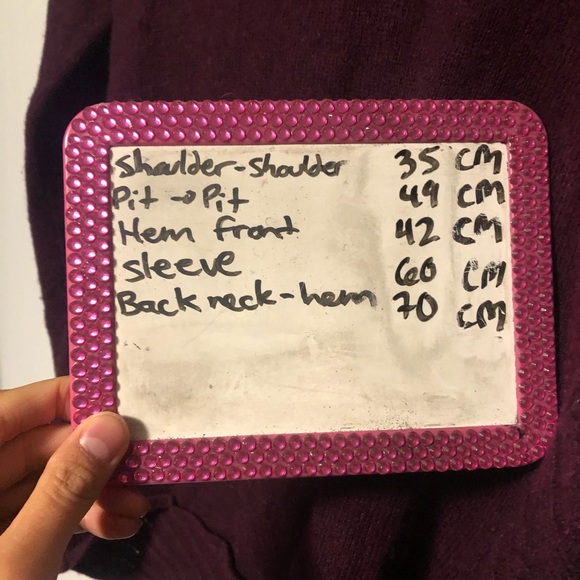 Shoulder-shoulder 35 CM
Pit → Pit 49 CM
Hem front 42 CM
sleeve 60 CM
Back neck-hem 70 CM